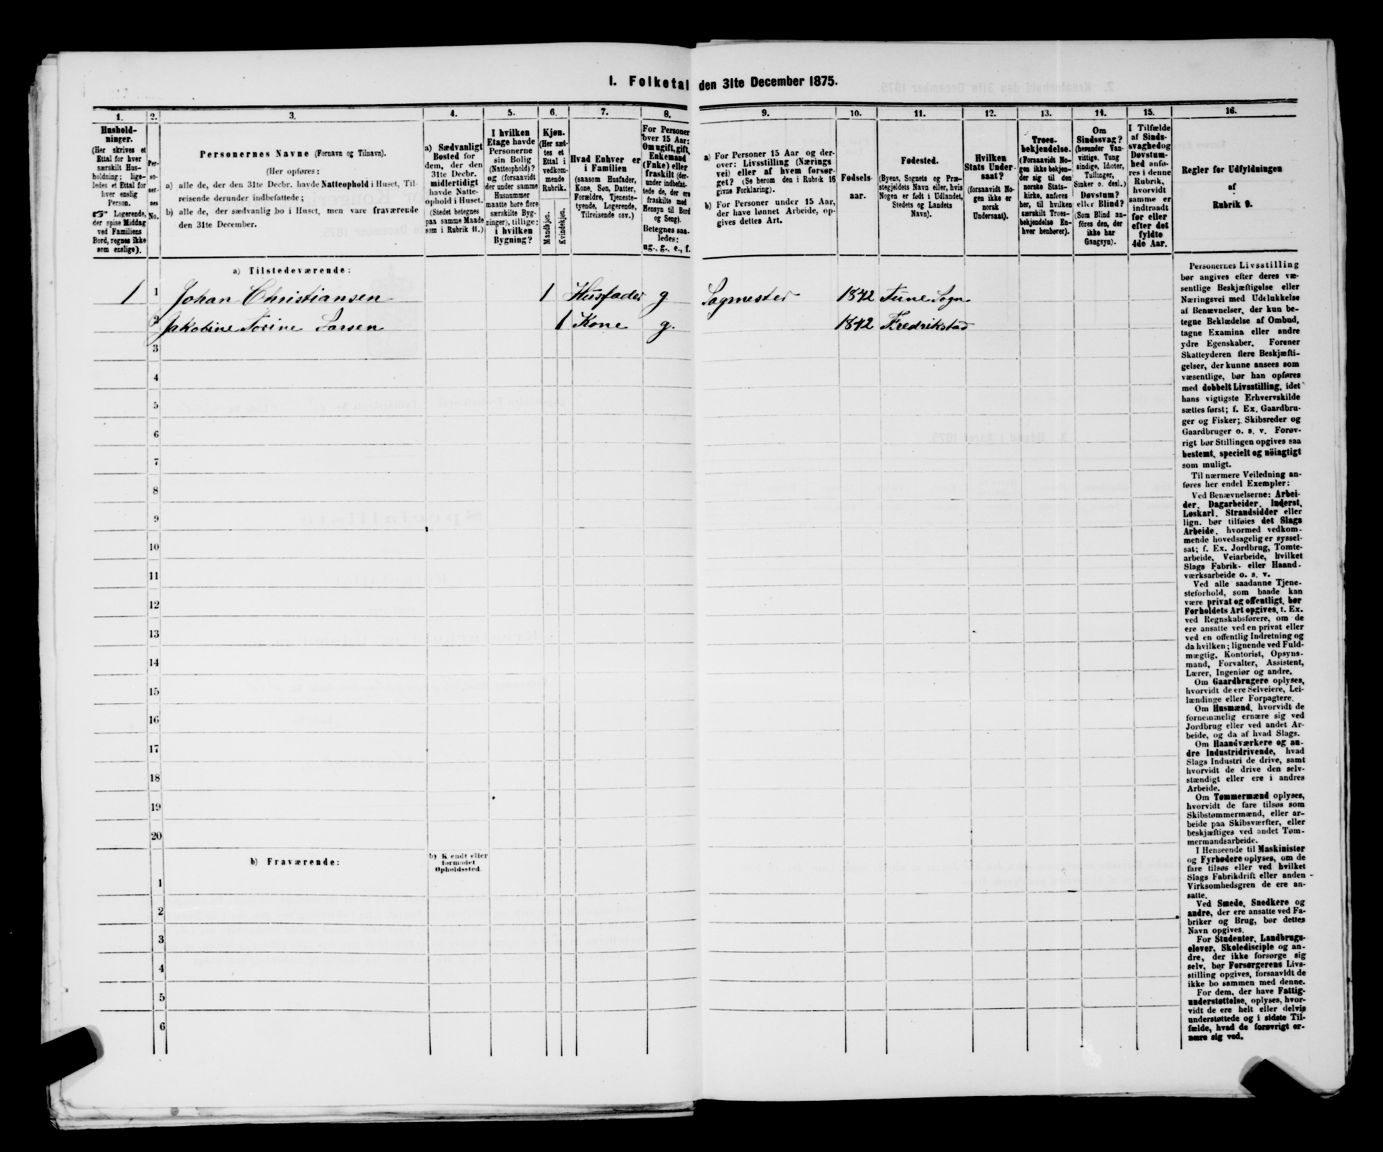 1. Folketal den 31te December 1875.
1. 2. 3. 4. 5. 6. 7. 8. 9. 10. 11. 12. 13. 14. 15. 16.
Hushold-
ninger.
(Her skrives et
Ettal for hver
særskilt Hus-
holdning; lige-
ledes et Ettal for
hver enslig
Person.
☞ Logerende,
der spise Middag
ved Familiens
Bord, regnes ikke
som enslige).
Per-
so-
ner-
nes
No.
Personernes Navne (Fornavn og Tilnavn).
(Her opføres:
a) alle de, der den 31te Decbr. havde Natteophold i Huset, Til-
reisende derunder indbefattede;
b) alle de, der sædvanlig bo i Huset, men vare fraværende
den 31te December.
a) Sædvanligt
Bosted for
dem, der den
31te Decbr.
midlertidigt
havde Natte-
ophold i Huset.
(Stedet betegnes
paa samme Maade
som i Rubrik 11.)
I hvilken
Etage havde
Personerne
sin Bolig
(Natteophold)?
og (forsaavidt
der under samme
Husnummer
maatte høre flere
særskilte Byg-
ninger), tillige:
i hvilken
Bygning?
Kjøn.
(Her sæt-
tes et
Ettal i
vedkom-
mende
Rubrik.
Mandkjøn.
Kvindekjøn.
Hvad Enhver er
i Familien
(saasom Husfader,
Kone, Søn, Datter,
Forældre, Tjeneste-
tyende, Logerende,
Tilreisende osv.).
For Personer
over 15 Aar:
Om ugift, gift,
Enkemand
(Enke) eller
fraskilt (der-
under indbefat-
tede de, der ere
fraskilte med
Hensyn til Bord
og Seng).
Betegnes saa-
ledes:
ug., g., e., f.
a) For Personer 15 Aar og der-
over: Livsstilling (Nærings
vei) eller af hvem forsør-
get? (Se herom den i Rubrik 16
givne Forklaring).
b) For Personer under 15 Aar,
der have lønnet Arbeide, op-
gives dettes Art.
Fødsels-
aar.
Fødested.
(Byens, Sognets og Præ-
stegjeldets Navn eller, hvis
Nogen er født i Udlandet,
Stedets og Landets
Navn).
Hvilken
Stats Under-
saat?
(forsaavidt No-
gen ikke er
norsk
Undersaat).
Troes-
bekjendelse.
(Forsaavidt No-
gen ikke bekjen-
der sig til den
norske Stats-
kirke, anføres
her, til hvilken
særskilt Troes-
bekjendelse En-
hver henhører).
Om
Sindssvag?
(herunder Van-
vittige, Tung
sindige, Idioter,
Tullinger,
Sinker o. desl.,)
Døvstum?
eller Blind?
(Som Blind an-
føres den, der
ikke har
Gangsyn).
I Tilfælde
af Sinds-
svaghed og
Døvstum-
hed anfø-
res i denne
Rubrik,
hvorvidt
samme er
indtraadt
før eller
efter det
fyldte
4de Aar.
Regler for Udfyldningen
af
Rubrik 9.
a) Tilstedeværende:
1 1 Johan Christiansen 1 Husfader g Sagmester 1842 Tune Sogn
2 Jakobine Torine Larsen 1 Kone g. 1842 Fredrikstad
3
4
5
6
7
8
9
10
11
12
13
14
15
16
17
18
19
20
b) Fraværende:
b) Kendt eller
formodet
Opholdssted.
1
2
3
4
5
6
Personernes Livsstilling
bør angives efter deres væ-
sentlige Beskjæftigelse eller
Næringsvei med Udelukkelse
af Benævnelser, der kun be-
tegne Beklædelse af Ombud,
tagne Examina eller andre
ydre Egenskaber. Forener
Skatteyderen flere Beskjæfti-
gelser, der kunne ansees som
væsentlige, bør han opføres
med dobbelt Livsstilling, idet
hans vigtigste Erhvervskilde
sættes først; f. Ex. Gaardbru-
ger og Fisker; Skibsreder og
Gaardbruger o. s. v. Forøv-
rigt bør Stillingen opgives saa
bestemt, specielt og nøiagtigt
som muligt.
Til nærmere Veiledning an-
føres her endel Exempler:
Ved Benævnelserne: Arbei-
der, Dagarbeider, Inderst,
Løskarl, Strandsidder eller
lign. bør tilføies det Slags
Arbeide, hvormed vedkom-
mende hovedsagelig er syssel-
sat; f. Ex. Jordbrug, Tomte-
arbeide, Veiarbeide, hvilket
Slags Fabrik- eller Haand-
værksarbeide o. s. v.
Ved alle saadanne Tjene-
steforhold, som baade kan
være privat og offentligt, bør
Forholdets Art opgives, t. Ex.
ved Regnskabsførere, om de
ere ansatte ved en privat eller
ved en offentlig Indretning og
da hvilken; lignende ved Fuld-
mægtig, Kontorist, Opsyns-
mand, Forvalter, Assistent,
Lærer, Ingeniør og andre.
Om Gaardbrugere oplyses,
hvorvidt de ere Selveiere, Lei-
lændinge eller Forpagtere.
Om Husmænd, hvorvidt de
fornemmelig ernære sig ved
Jordbrug eller ved andet Ar-
beide, og da af hvad Slags.
Om Haandværkere og an-
dre Industridrivende, hvad
Slags Industri de drive, samt
hvorvidt de drive den selv-
stændigt eller ere i andres
Arbeide.
Om Tømmermænd oplyses,
hvorvidt de fare tilsøs som
Skibstømmermænd, eller ar-
beide paa Skibsværfter, eller
beskjæftiges ved andet Tøm-
mermandsarbeide.
I Henseende til Maskinister
og Fyrbødere oplyses, om de
fare tilsøs eller ved hvilket
Slags Fabrikdrift eller anden
Virksomhedsgren de ere an-
satte.
Ved Smede, Snedkere og
andre, der ere ansatte ved Fa-
briker og Brug, bør dettes
Navn opgives.
For Studenter, Landbrugs-
elever, Skoledisciple og an-
dre, der ikke forsørge sig
selv, bør Forsørgerens Livs-
stilling opgives, forsaavidt de
ikke bo sammen med denne.
For dem, der have Fattig-
understøttelse, oplyses, hvor-
vidt de ere helt eller delvis
understøttede og i sidste Til-
fælde, hvad de forøvrigt er-
nære sig ved.